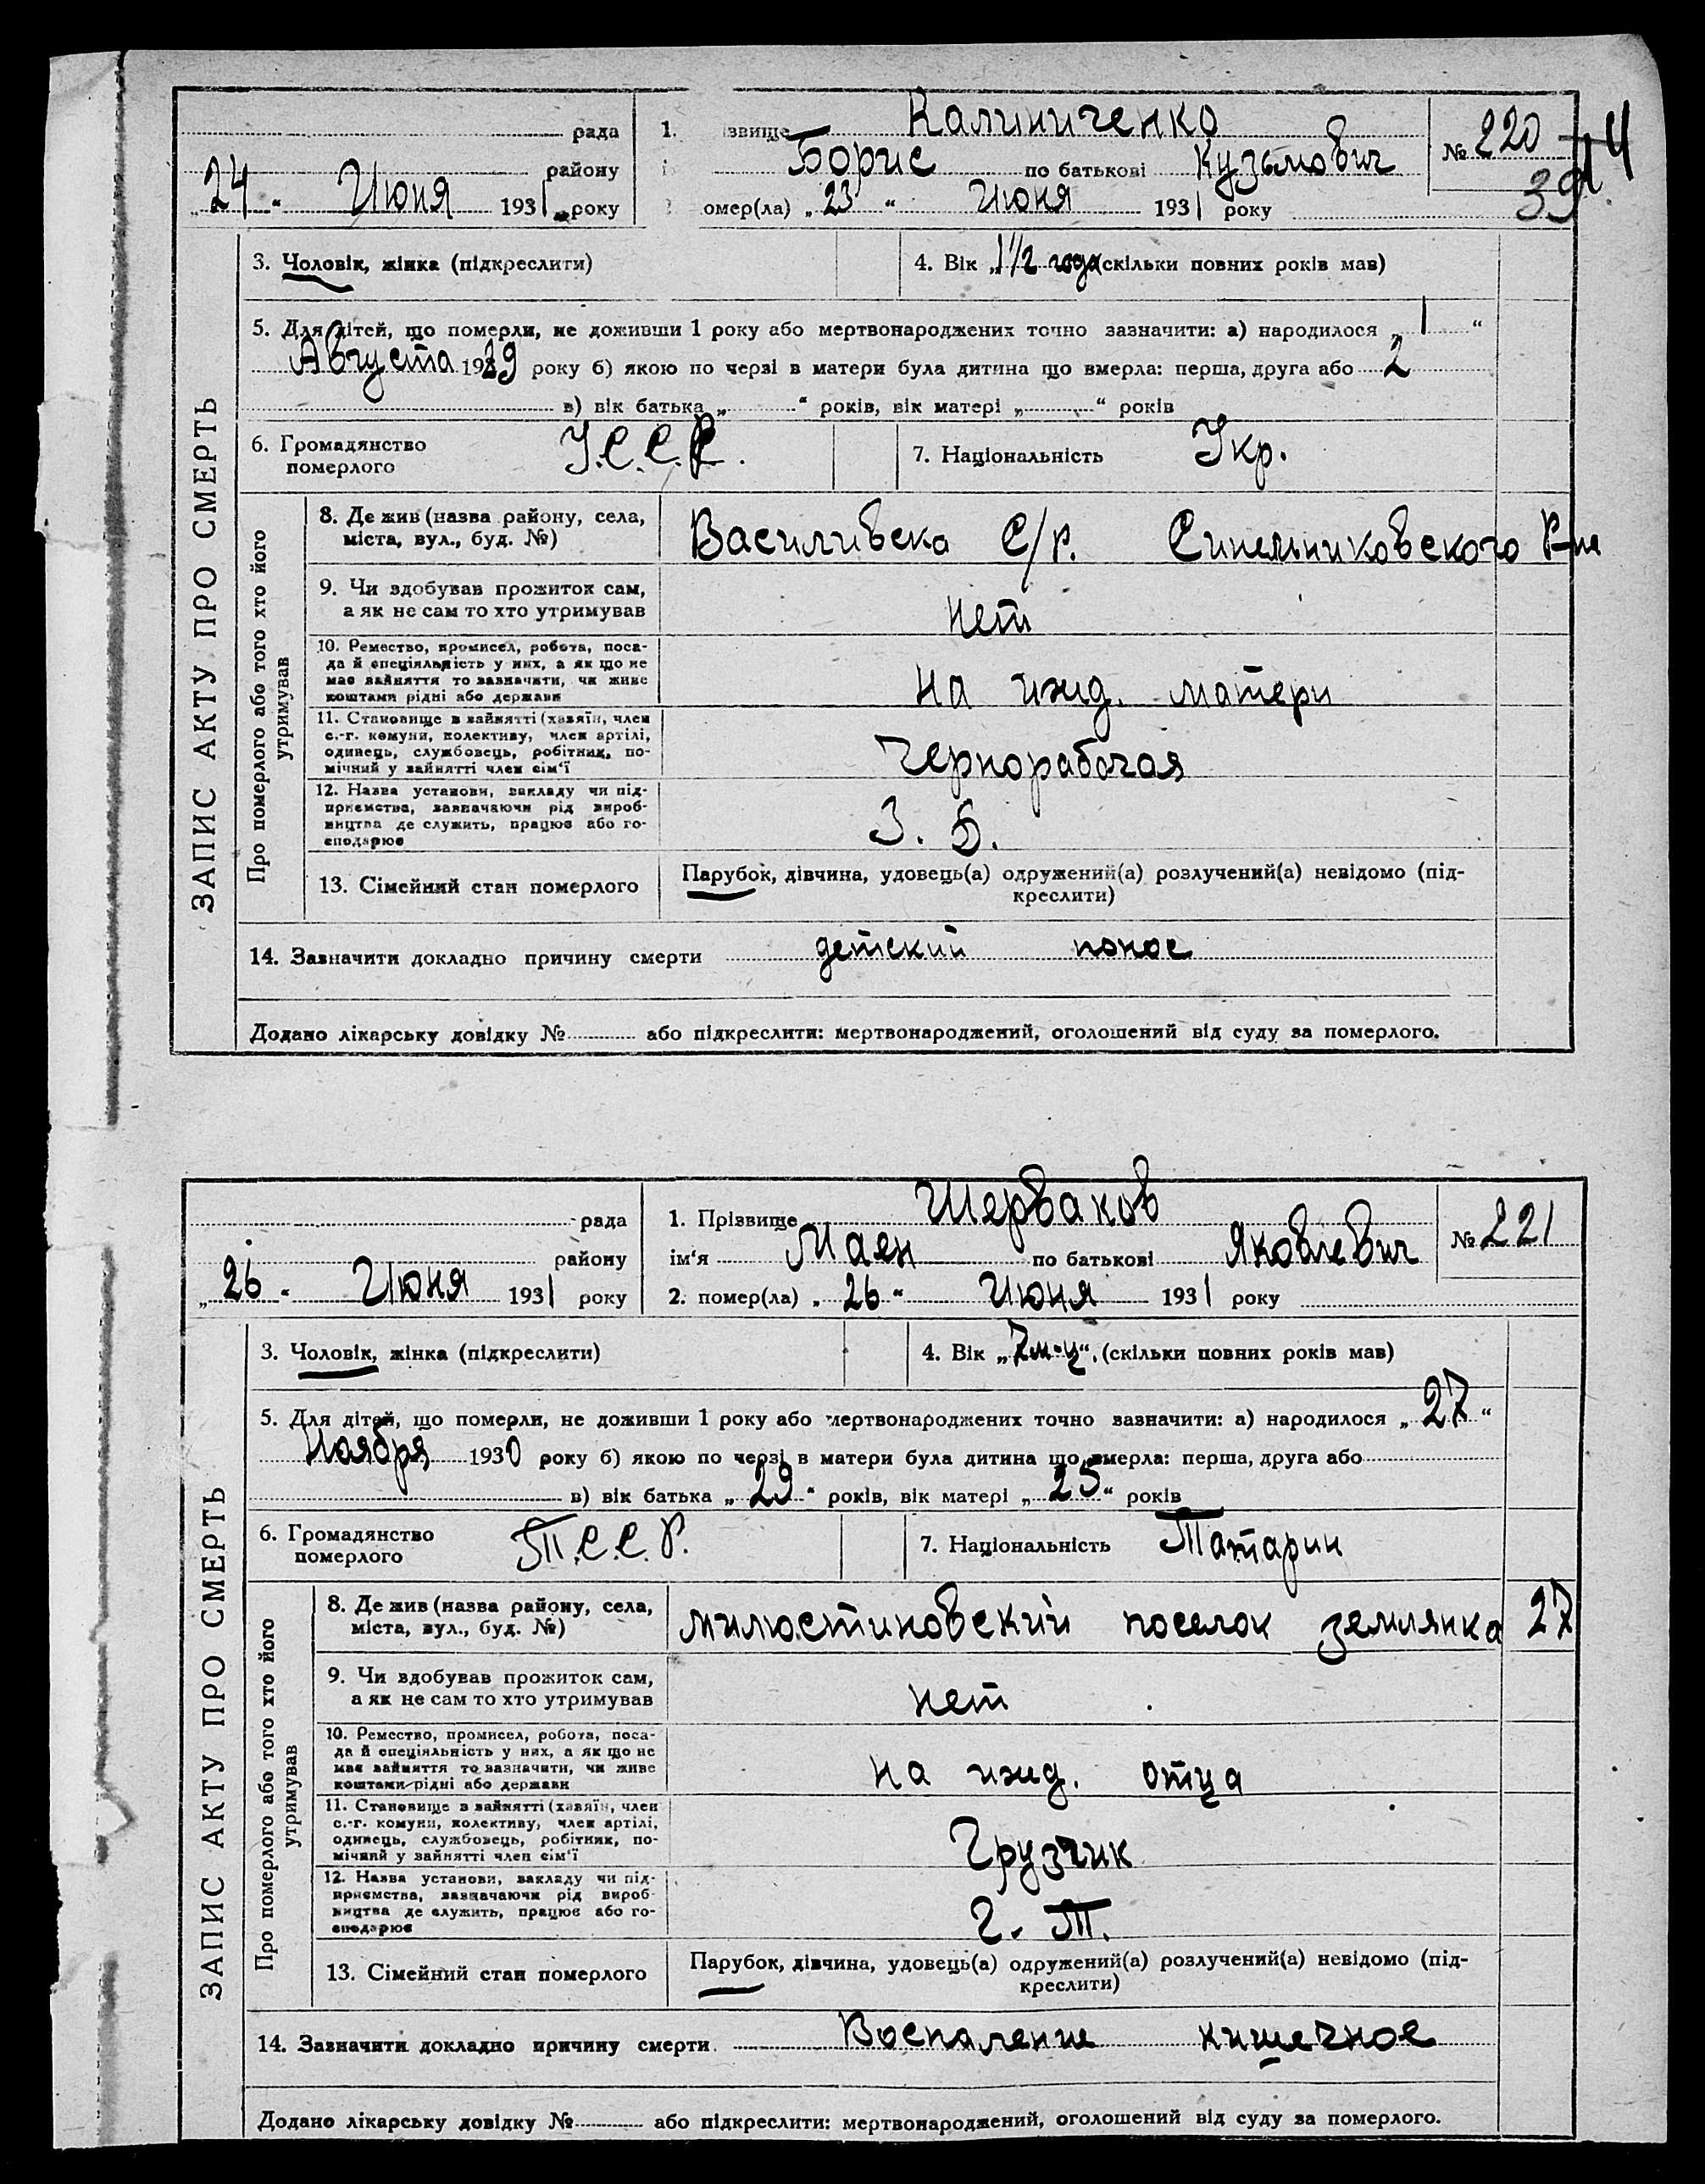 рада
району
„24“ Июня 1931 року
1. ізвище Калиниченко
Борис по батькові Кузьмович
омер(ла) „23“ Июня 1931 року
№ 220
39
3. Чоловік, жінка (підкреслити)
4. Вік „1 1/2 года (скільки повних років мав)
5. Для дітей, що померли, не доживши 1 року або мертвонароджених точно зазначити: а) народилося „1“
Августа 1929 року б) якою по черзі в матери була дитина що вмерла: перша, друга або 2
в) вік батька „ “ років, вік матері „ “ років
6. Громадянство померлого У.С.С.Р.
7. Національність Укр.
ЗАПИС АКТУ ПРО СМЕРТЬ
Про померлого або того хто його утримував
8. Де жив (назва району, села, міста, вул., буд. №)
Василивска С/р. Синельниковского Р-на
9. Чи здобував прожиток сам, а як не сам то хто утримував
нет
10. Ремество, промисел, робота, поса-
да й спеціяльність у них, а як що не
має зайняття то зазначити, чи живе
коштами рідні або держави
на ижд. матери
11. Становище в зайнятті (хазяїн, член
с.-г. комуни, колективу, член артілі,
одинець, службовець, робітник, по-
мічний у зайнятті член сім'ї
Чернорабочая
12. Назва установи, закладу чи під-
приємства, зазначаючи рід вироб-
ництва де служить, працює або го-
сподарює
З. Б.
13. Сімейний стан померлого
Парубок, дівчина, удовець(а) одружений(а) розлучений(а) невідомо (під-
креслити)
14. Зазначити докладно причину смерти детский понос
Додано лікарську довідку № або підкреслити: мертвонароджений, оголошений від суду за померлого.
рада
району
„26“ Июня 1931 року
1. Прізвище Шерваков
ім'я Маен по батькові Яковлевич
2. помер(ла) „26“ Июня 1931 року
№ 221
3. Чоловік, жінка (підкреслити)
4. Вік „7 м-ц“ (скільки повних років мав)
5. Для дітей, що померли, не доживши 1 року або мертвонароджених точно зазначити: а) народилося „27“
Ноября 1930 року б) якою по черзі в матери була дитина що вмерла: перша, друга або
в) вік батька „29“ років, вік матері „25“ років
6. Громадянство померлого Т.С.С.Р.
7. Національність Татарин
ЗАПИС АКТУ ПРО СМЕРТЬ
Про померлого або того хто його утримував
8. Де жив (назва району, села, міста, вул., буд. №)
милостиновский поселок землянка 27
9. Чи здобував прожиток сам, а як не сам то хто утримував
нет
10. Ремество, промисел, робота, поса-
да й спеціяльність у них, а як що не
має зайняття то зазначити, чи живе
коштами рідні або держави
на ижд. отца
11. Становище в зайнятті (хазяїн, член
с.-г. комуни, колективу, член артілі,
одинець, службовець, робітник, по-
мічний у зайнятті член сім'ї
Грузчик
12. Назва установи, закладу чи під-
приємства, зазначаючи рід вироб-
ництва де служить, працює або го-
сподарює
Г. Т.
13. Сімейний стан померлого
Парубок, дівчина, удовець(а) одружений(а) розлучений(а) невідомо (під-
креслити)
14. Зазначити докладно причину смерти. Воспаление кишечное
Додано лікарську довідку № або підкреслити: мертвонароджений, оголошений від суду за померлого.